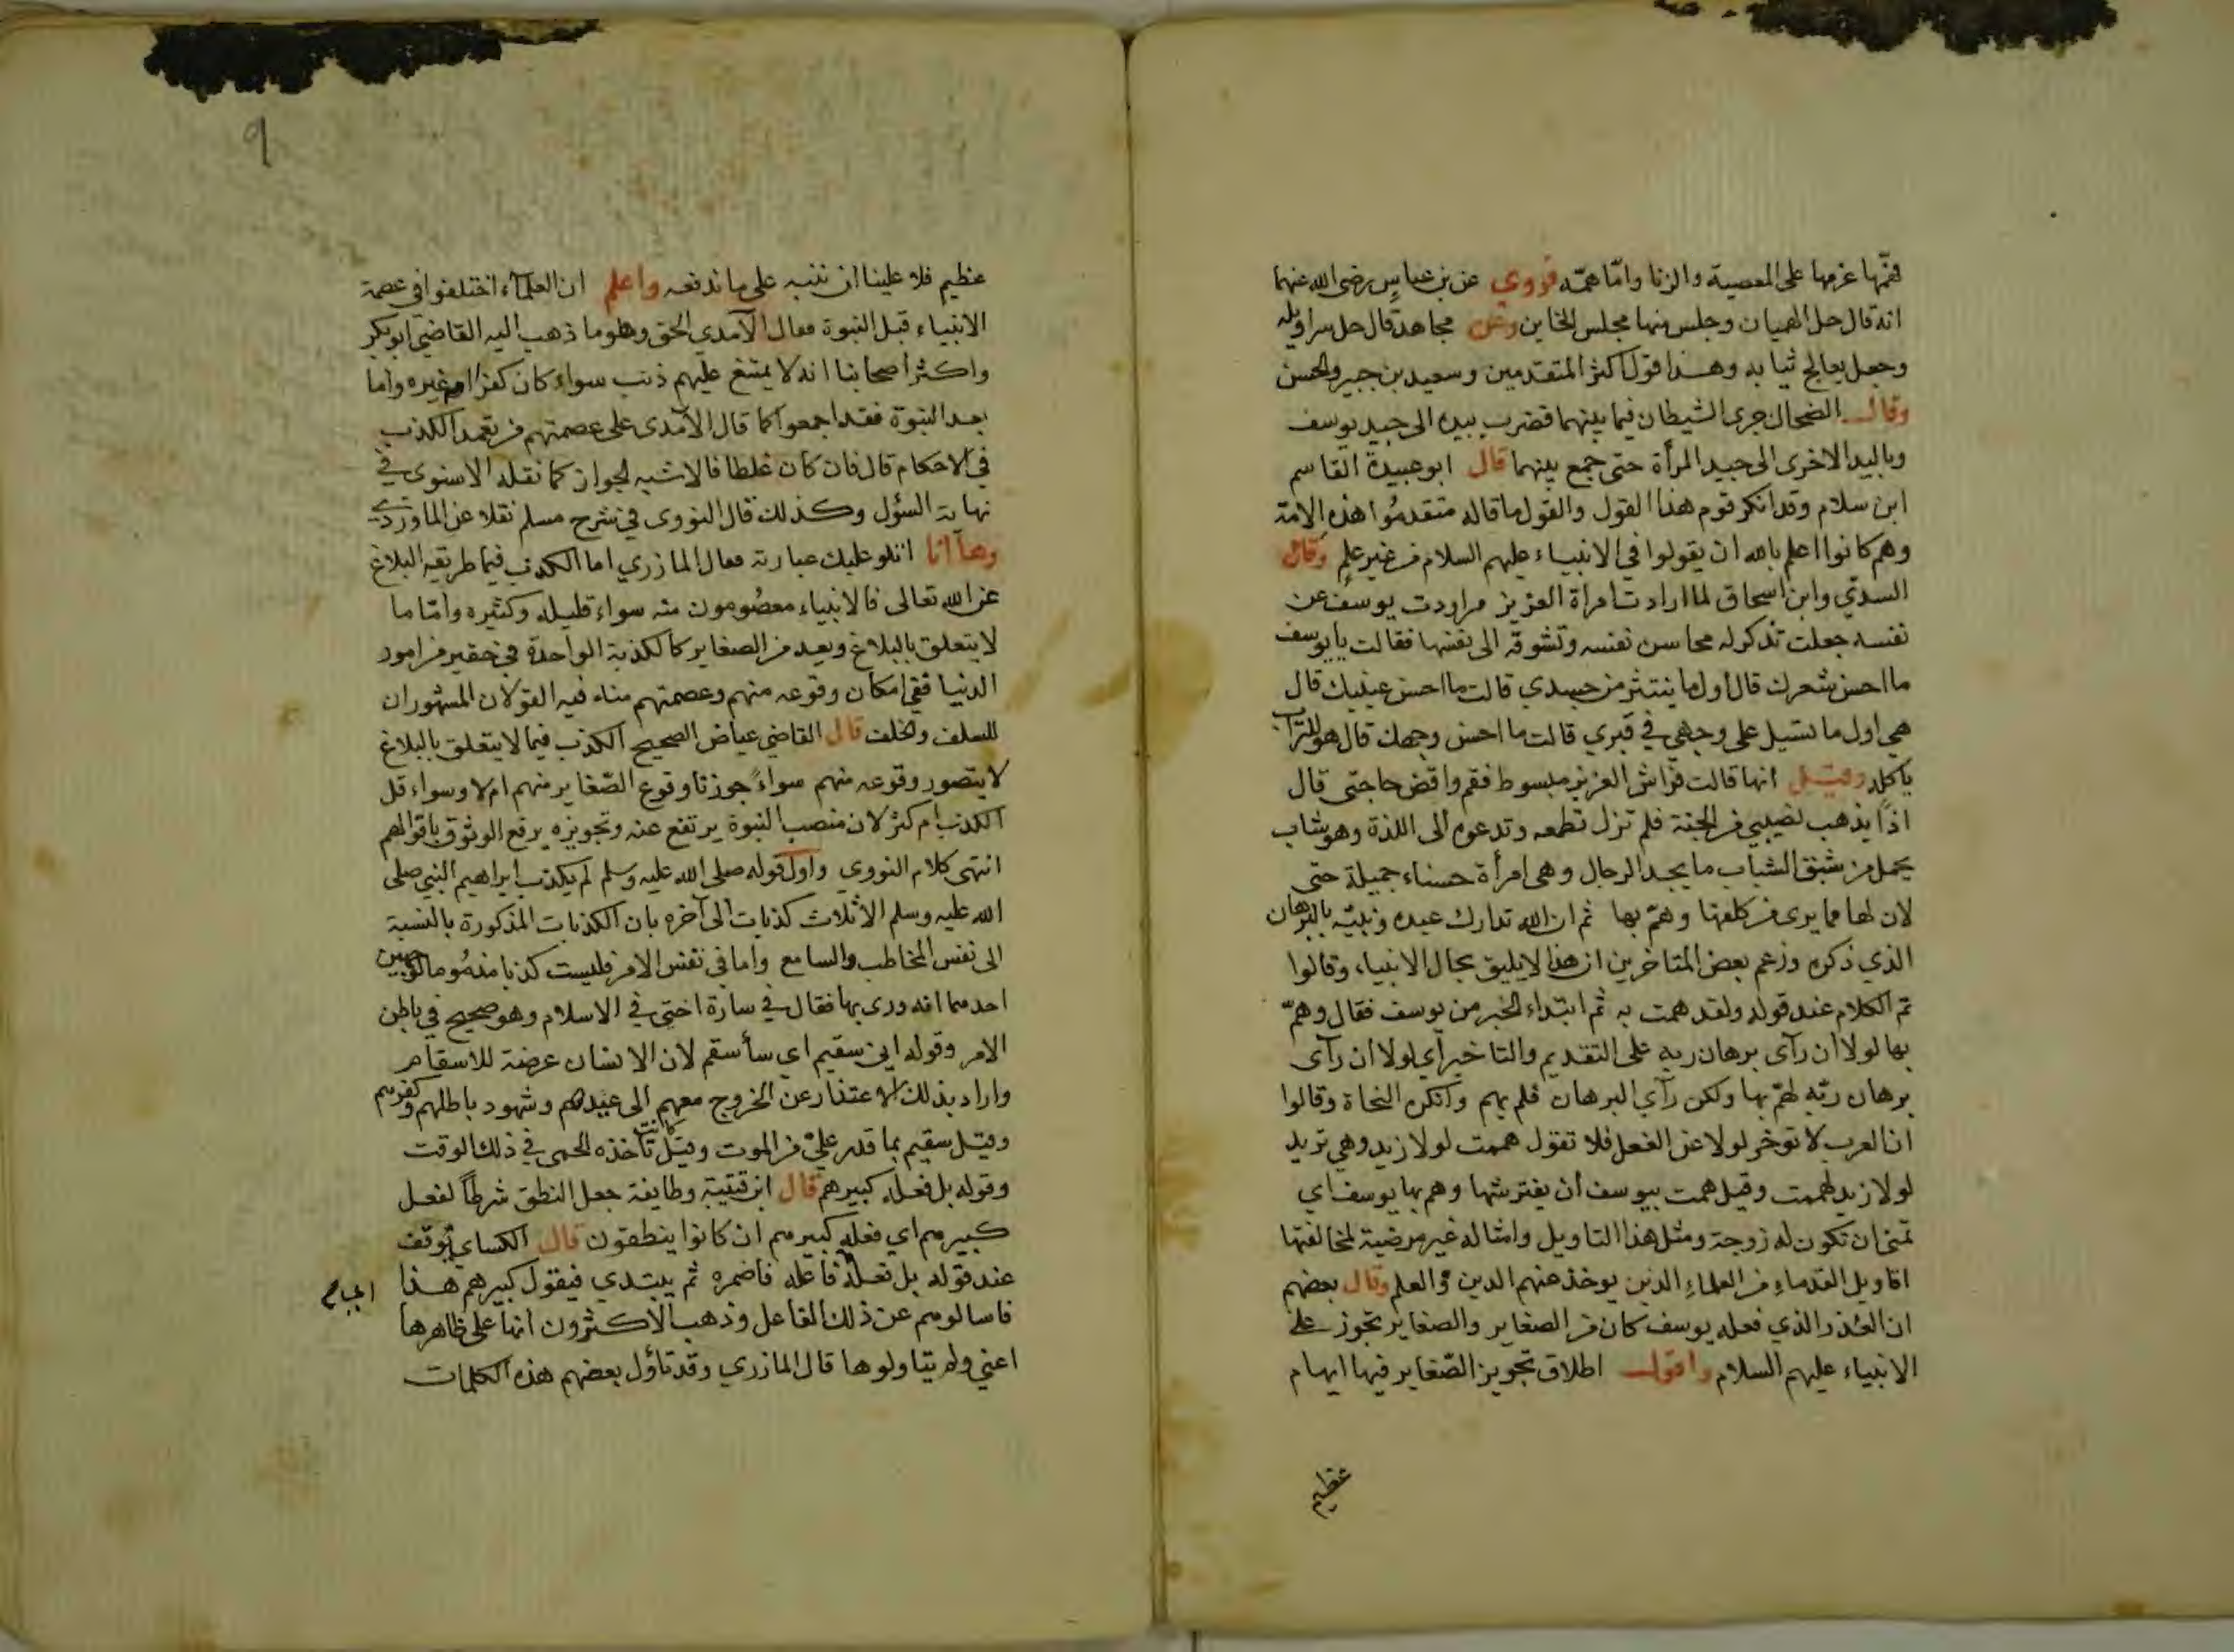 فهمّها عزمها على المعصية والزنا وامّا همّه فروي عن بن عباس رضي الله عنهما
انه قال حل الهميان وجلس منها مجلس الخاين وعن مجاهد قال حل سراويله
وجعل يعالج ثيابه وهذا قول اكثر المتقدمين وسعيد بن جبير والحسن
وقال الضحاك جرى الشيطان فيما بينهما فضرب بيده الى جيد يوسف
وباليد الاخرى الى جيد المرأة حتى جمع بينهما قال ابو عبيدة القاسم
ابن سلام وقد انكر قوم هذا القول والقول ما قاله متقدمُوا هذه الامة
وهم كانوا اعلم بالله ان يقولوا في الانبياء عليهم السلام من غير علم وقال
السدّي وابن اسحاق لما ارادت امراة العزيز مراودت يوسف عن
نفسه جعلت تذكر له محاسن نفسه وتشوقه الى نفسها فقالت يا يوسف
ما احسن شعرك قال اول ما ينتثر من جسدي قالت ما احسن عينيك قال
هي اول ما تسيل على وجهي في قبري قالت ما احسن وجهك قال هو للتراب
ياكله وقيل انها قالت فراش العزيز مبسوط فقم واقض حاجتي قال
اذًا يذهب نصيبي من الجنة فلم تزل تطمعه وتدعوه الى اللذة وهو شاب
يحمل من شبق الشباب ما يجد الرجال وهي امرأة حسناء جميلة حتى
لان لها مما يرى من كلفها وهمّ بها ثم ان الله تدارك عبده ونبيّه بالبرهان
الذي ذكره وزعم بعض المتاخرين ان هذا لا يليق بحال الانبياء وقالوا
تم الكلام عند قوله ولقد همت به ثم ابتداء الخبر من يوسف فقال وهمّ
بها لولا ان رآى برهان ربه على التقديم والتاخير أي لولا ان رآى
برهان ربّه لهمّ بها ولكن رآى البرهان فلم يهم وانكره النحاة وقالوا
ان العرب لا توخر لولا عن الفعل فلا تقول هممت لولا زيد وهي تريد
لولا زيد لهممت وقيل همت بيوسف أن يفترشها وهم بها يوسف اي
تمنى ان تكون له زوجة ومثل هذا التاويل وامثاله غير مرضية لمخالفتها
اقاويل القدماء من العلماء الذين يوخذ عنهم الدين والعلم وقال بعضهم
ان القدر الذي فعله يوسف كان من الصغاير والصغاير تجوز على
الانبياء عليهم السلام واقول اطلاق تجويز الصّغاير فيها ايهام
عظيم
٩
عظيم فلا علينا ان ننبه على ما ندفعه واعلم ان العلماء اختلفوا في عصمة
الانبياء قبل النبوة فقال الآمدي الحق وهو ما ذهب اليه القاضي ابو بكر
واكثر اصحابنا انه لا يمتنع عليهم ذنب سواء كان كفرا او غيره واما
بعد النبوة فقد اجمعوا كما قال الآمدى على عصمتهم من تعمد الكذب
في الاحكام قال فان كان غلطا فالاشبه الجواز كما نقله الاسنوى في
نهاية السؤل وكذلك قال النووى في شرح مسلم نقلا عن الماوردي
وها انا اتلو عليك عبارته فقال المازري اما الكذب فيما طريقه البلاغ
عن الله تعالى فالانبياء معصُومون منه سواء قليله وكثيره وامّا ما
لا يتعلق بالبلاغ ويعد من الصغاير كالكذبة الواحدة في حقير من امور
الدنيا ففي امكان وقوعه منهم وعصمتهم منه فيه القولان المشهوران
للسلف والخلف قال القاضي عياض الصحيح الكذب فيما لا يتعلق بالبلاغ
لا يتصور وقوعه منهم سواءً جوزنا وقوع الصّغاير منهم ام لا وسواء قل
الكذب ام كثر لان منصب النبوة يرتفع عنه وتجويزه يرفع الوثوق باقوالهم
انتهى كلام النووي واول قوله صلى الله عليه وسلم لم يكذب ابراهيم النبي صلى
الله عليه وسلم الا ثلاث كذبات الى آخره بان الكذبات المذكورة بالنسبة
الى نفس المخاطب والسامع واما في نفس الامر فليست كذبا مذمُوما لوجهين
احدهما انه ورى بها فقال في سارة اختي في الاسلام وهو صحيح في باطن
الامر وقوله اني سقيم اي سأسقم لان الانسان عرضة للاسقام
واراد بذلك الاعتذار عن الخروج معهم الى عيدهم وشهود باطلهم وكفرهم
وقيل سقيم بما قدر عليّ من الموت وقيل كانت تاخذه الحمى في ذلك الوقت
وقوله بل فعله كبيرهم قال ابن قتيبة وطايفة جعل النطق شرطاً لفعل
كبيرهم اي فعله كبيرهم ان كانوا ينطقون قال الكساي يُوقف
عند قوله بل فعله فاعله فاضمره ثم يبتدي فيقول كبيرهم هذا
فاسالوهم عن ذلك الفاعل وذهب الاكثرون انها على ظاهرها
اعني ولم يتاولوها قال المازري وقد تاؤل بعضهم هذه الكلمات